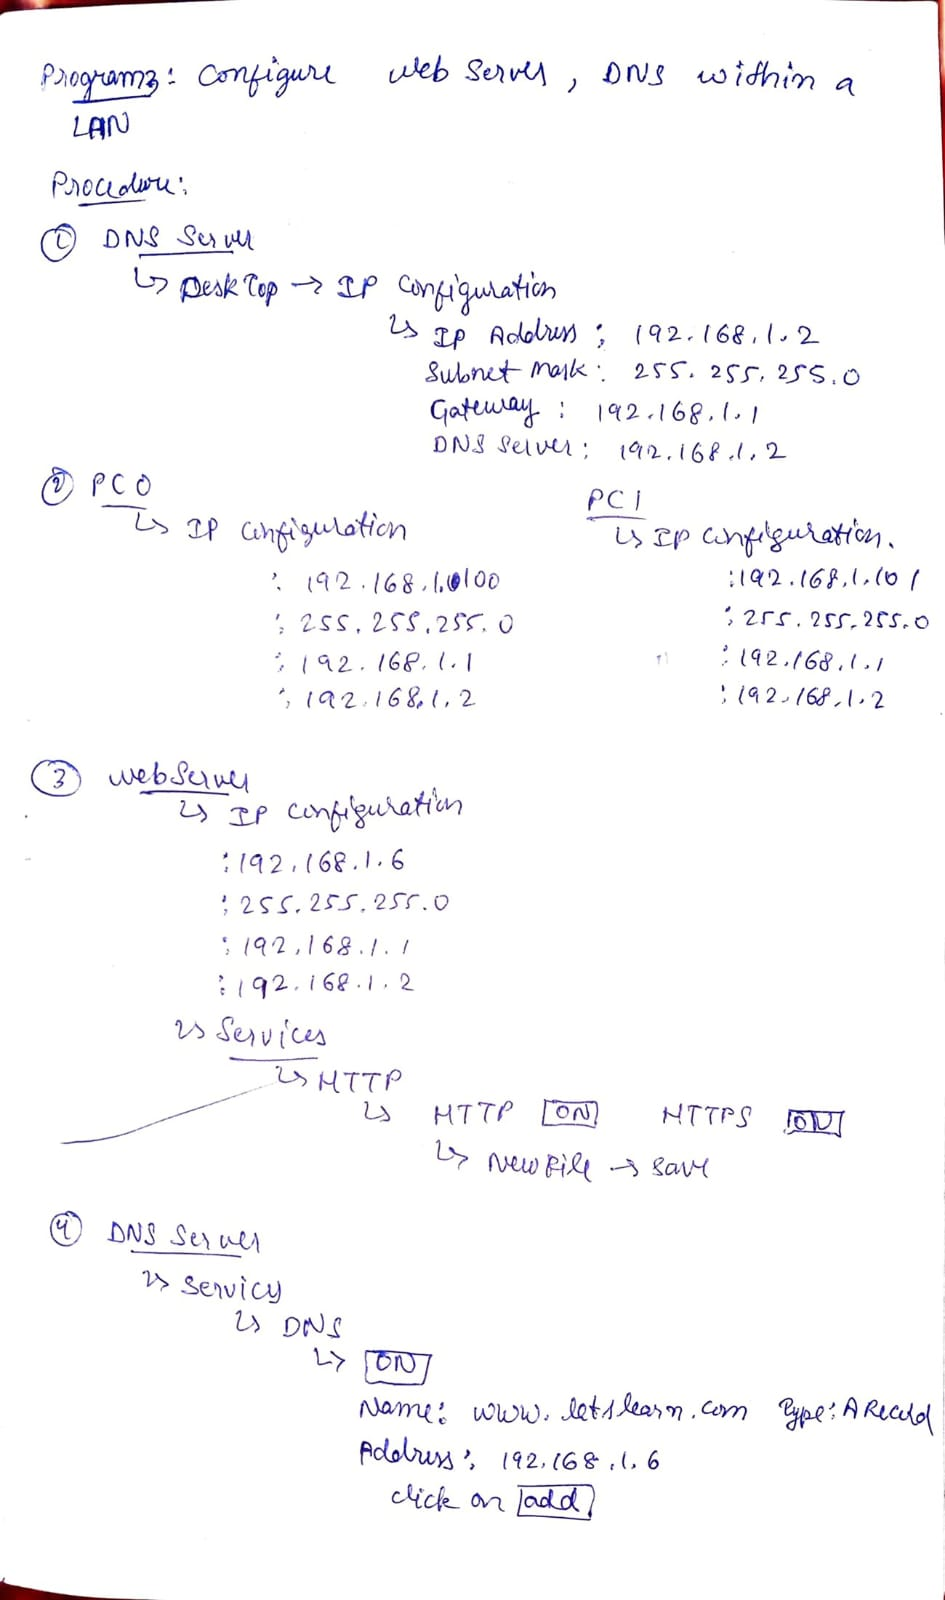 Program3: Configure Web Server, DNS within a
LAN
Procedure:
① DNS Server
↳ DeskTop → IP Configuration
↳ IP Address : 192.168.1.2
Subnet Mask : 255.255.255.0
Gateway : 192.168.1.1
DNS Server : 192.168.1.2
② PC0
↳ IP Configuration
: 192.168.1.100
: 255.255.255.0
: 192.168.1.1
: 192.168.1.2
PC1
↳ IP Configuration.
: 192.168.1.101
: 255.255.255.0
: 192.168.1.1
: 192.168.1.2
③ WebServer
↳ IP Configuration
: 192.168.1.6
: 255.255.255.0
: 192.168.1.1
: 192.168.1.2
↳ Services
↳ HTTP
↳ HTTP ON HTTPS ON
↳ New File → Save
④ DNS Server
↳ Services
↳ DNS
↳ ON
Name: www.letslearn.com Type: A Record
Address : 192.168.1.6
click on add